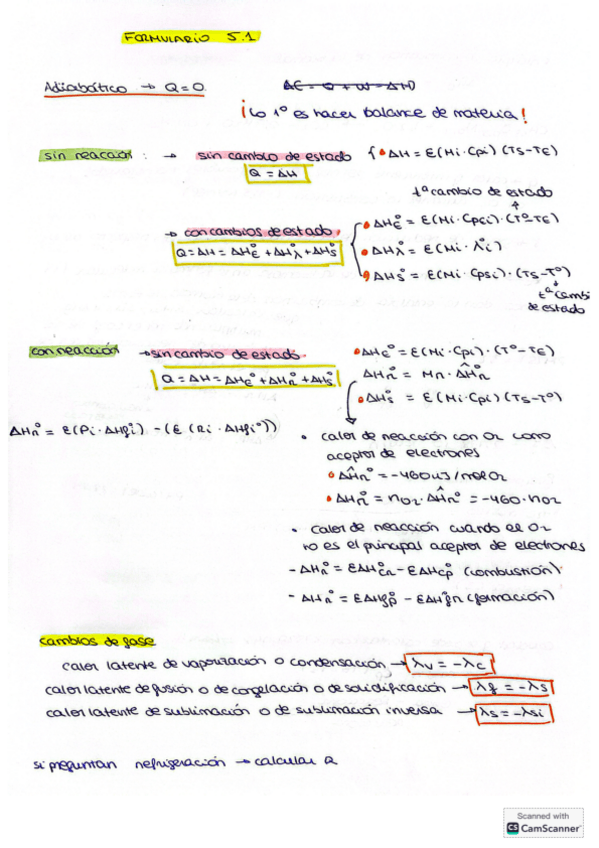 FORMULARIO 5.1
Adiabático → Q=0. ΔE = Q + W = ΔH)
¡Lo 1º es hacer balance de materia!
sin reacción : → sin cambio de estado { • ΔH = Ɛ(Mi·Cpi)(Ts-TE)
Q = ΔH
tª cambio de estado
→ con cambios de estado. • ΔHE° = Ɛ(Mi·Cpei)·(T°-TE)
Q = ΔH = ΔHE° + ΔHλ° + ΔHs° • ΔHλ° = Ɛ(Mi·λ°i)
• ΔHs° = Ɛ(Mi·Cpsi)·(Ts-T°)
tª cambi
de estado
con reacción → sin cambio de estado. • ΔHE° = Ɛ(Mi·Cpi)·(T°-TE)
Q = ΔH = ΔHE° + ΔHr° + ΔHs° ΔHr° = Mr·ΔĤr°
• ΔHs° = Ɛ(Mi·Cpi)(Ts-T°)
ΔHr° = Ɛ(Pi·ΔHfi°) - (Ɛ(Ri·ΔHfi°))
• calor de reacción con O2 como
aceptor de electrones
• ΔĤr° = -460 kJ/mol O2
• ΔHr° = nO2·ΔĤr° = -460·nO2
• calor de reacción cuando el O2
no es el principal aceptor de electrones
- ΔHr° = ƐΔH°cr - ƐΔH°cp (combustión)
- ΔHr° = ƐΔH°fp - ƐΔH°fr (formación)
cambios de fase
calor latente de vaporización o condensación → λv = -λc
calor latente de fusión o de congelación o de solidificación → λf = -λs
calor latente de sublimación o de sublimación inversa → λs = -λsi
si preguntan refrigeración → calcular Q
Scanned with
CS CamScanner